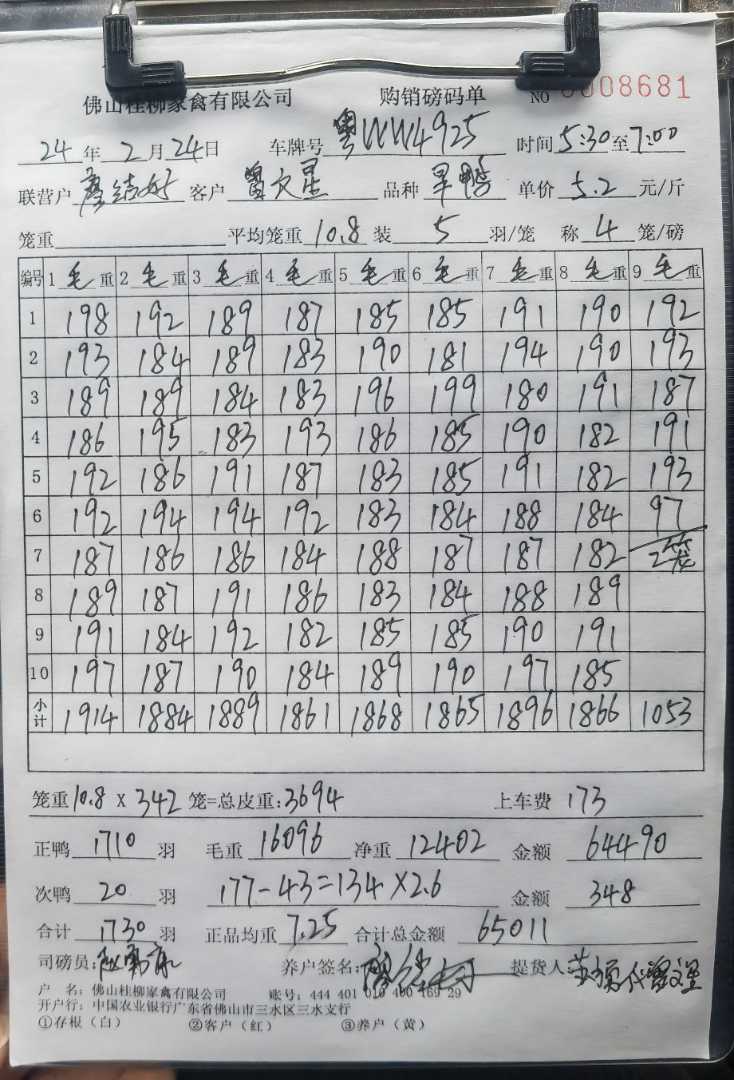 佛山桂柳家禽有限公司 购销磅码单 NO 0008681
24年2月24日 车牌号 粤WW4925 时间5:30至7:00
联营户 廖结好 客户 曾文星 品种 旱鸭 单价 5.2 元/斤
笼重 平均笼重 10.8 装 5 羽/笼 称 4 笼/磅
编号 1毛重 2毛重 3毛重 4毛重 5毛重 6毛重 7毛重 8毛重 9毛重
1 198 192 189 187 185 185 191 190 192
2 193 184 189 183 190 181 194 190 193
3 189 189 184 183 196 199 180 191 187
4 186 195 183 193 186 185 190 182 191
5 192 186 191 187 183 185 191 182 193
6 192 194 194 192 183 184 188 184 97
7 187 186 186 184 188 187 187 182 2笼
8 189 187 191 186 183 184 188 189
9 191 184 192 182 185 185 190 191
10 197 187 190 184 189 190 197 185
小计 1914 1884 1889 1861 1868 1865 1896 1866 1053
笼重10.8×342笼=总皮重:3694 上车费 173
正鸭 1710 羽 毛重 16096 净重 12402 金额 64490
次鸭 20 羽 177-43=134×2.6 金额 348
合计 1730 羽 正品均重 7.25 合计总金额 65011
司磅员: 养户签名: 提货人:
户 名: 佛山桂柳家禽有限公司 账号: 444 401 010 400 169 29
开户行: 中国农业银行广东省佛山市三水区三水支行
①存根（白） ②客户（红） ③养户（黄）